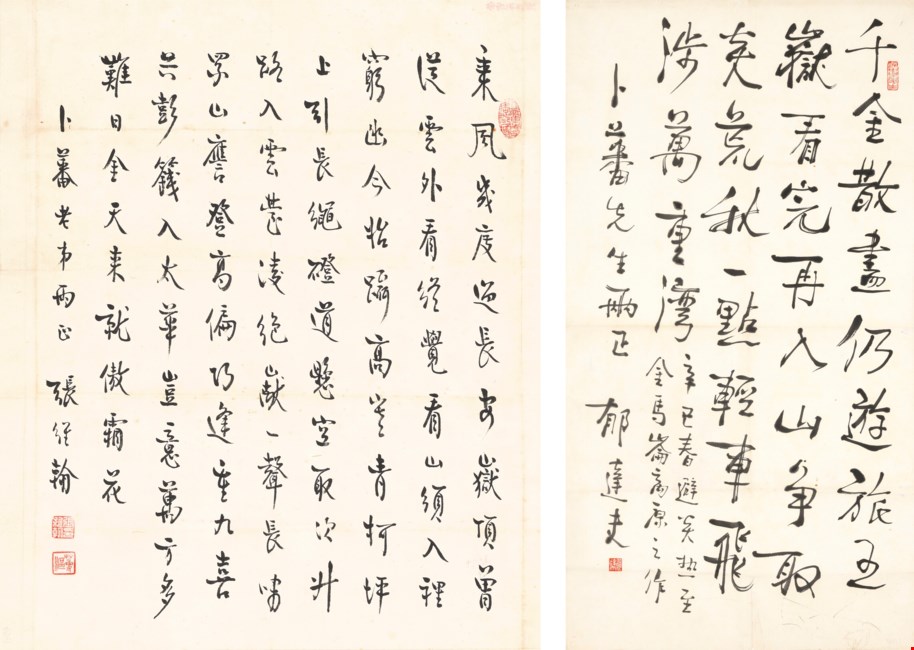 千金散盡仍遊旅五
嶽看完再入山爭取
炎荒秋一點輕車飛
涉萬重灣
辛巳春避炎熱至
金馬崙高原之作
卜蕃先生兩正 郁達夫
乘風幾度過長安嶽頂曾
從雲外看終覺看山須入裡
窮幽今始躡高峯青柯坪
上引長繩磴道懸空取次升
路入雲叢凌絕巘一聲長嘯
眾山譍登高偏巧逢重九喜
共彭籛入太華豈意萬方多
難日金天來就傲霜花
卜蕃老弟兩正 張維翰